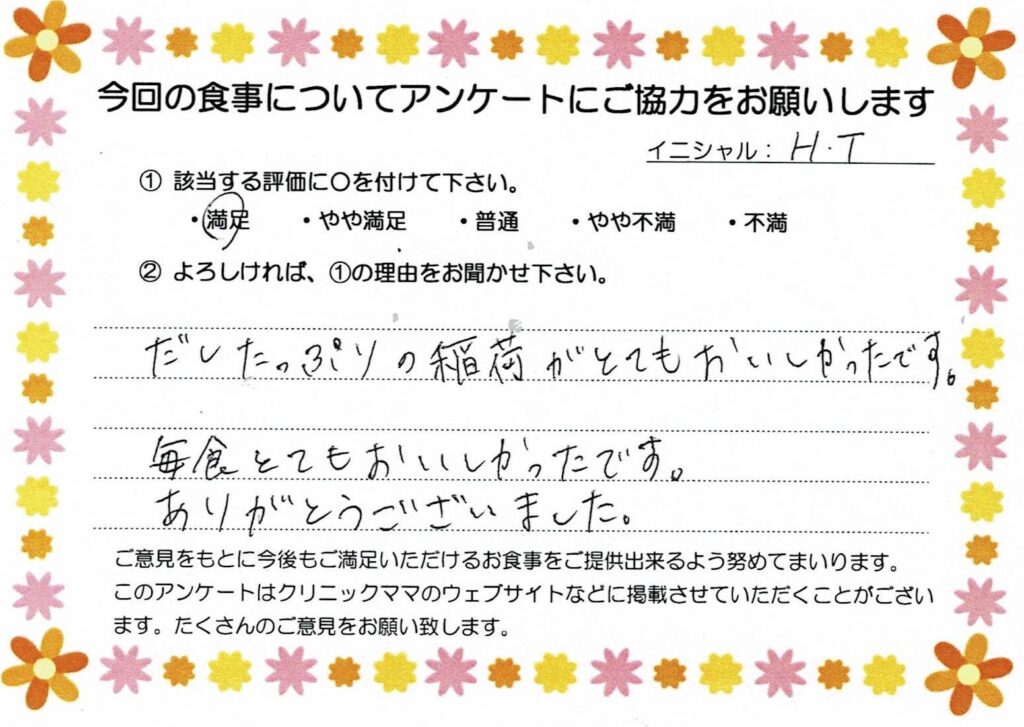 今回の食事についてアンケートにご協力をお願いします
イニシャル： H.T
① 該当する評価に〇を付けて下さい。
・満足 ・やや満足 ・普通 ・やや不満 ・不満
② よろしければ、①の理由をお聞かせ下さい。
だしたっぷりの稲荷がとてもおいしかったです。
毎食とてもおいしかったです。
ありがとうございました。
ご意見をもとに今後もご満足いただけるお食事をご提供出来るよう努めてまいります。
このアンケートはクリニックママのウェブサイトなどに掲載させていただくことがござい
ます。たくさんのご意見をお願い致します。